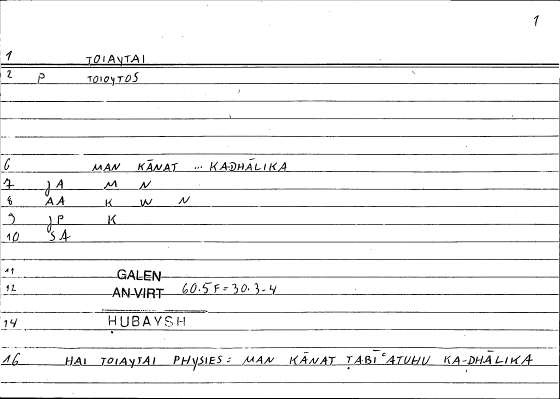 1
1 TOIAYTAI
2 P TOIOYTOS
6 MAN KĀNAT ... KADHĀLIKA
7 JA M N
8 AA K W N
9 JP K
10 SA
11 GALEN
12 AN·VIRT 60.5F=30.3-4
14 ḤUBAYSH
16 HAI TOIAYTAI PHYSIES: MAN KĀNAT ṬABĪʿATUHU KA-DHĀLIKA